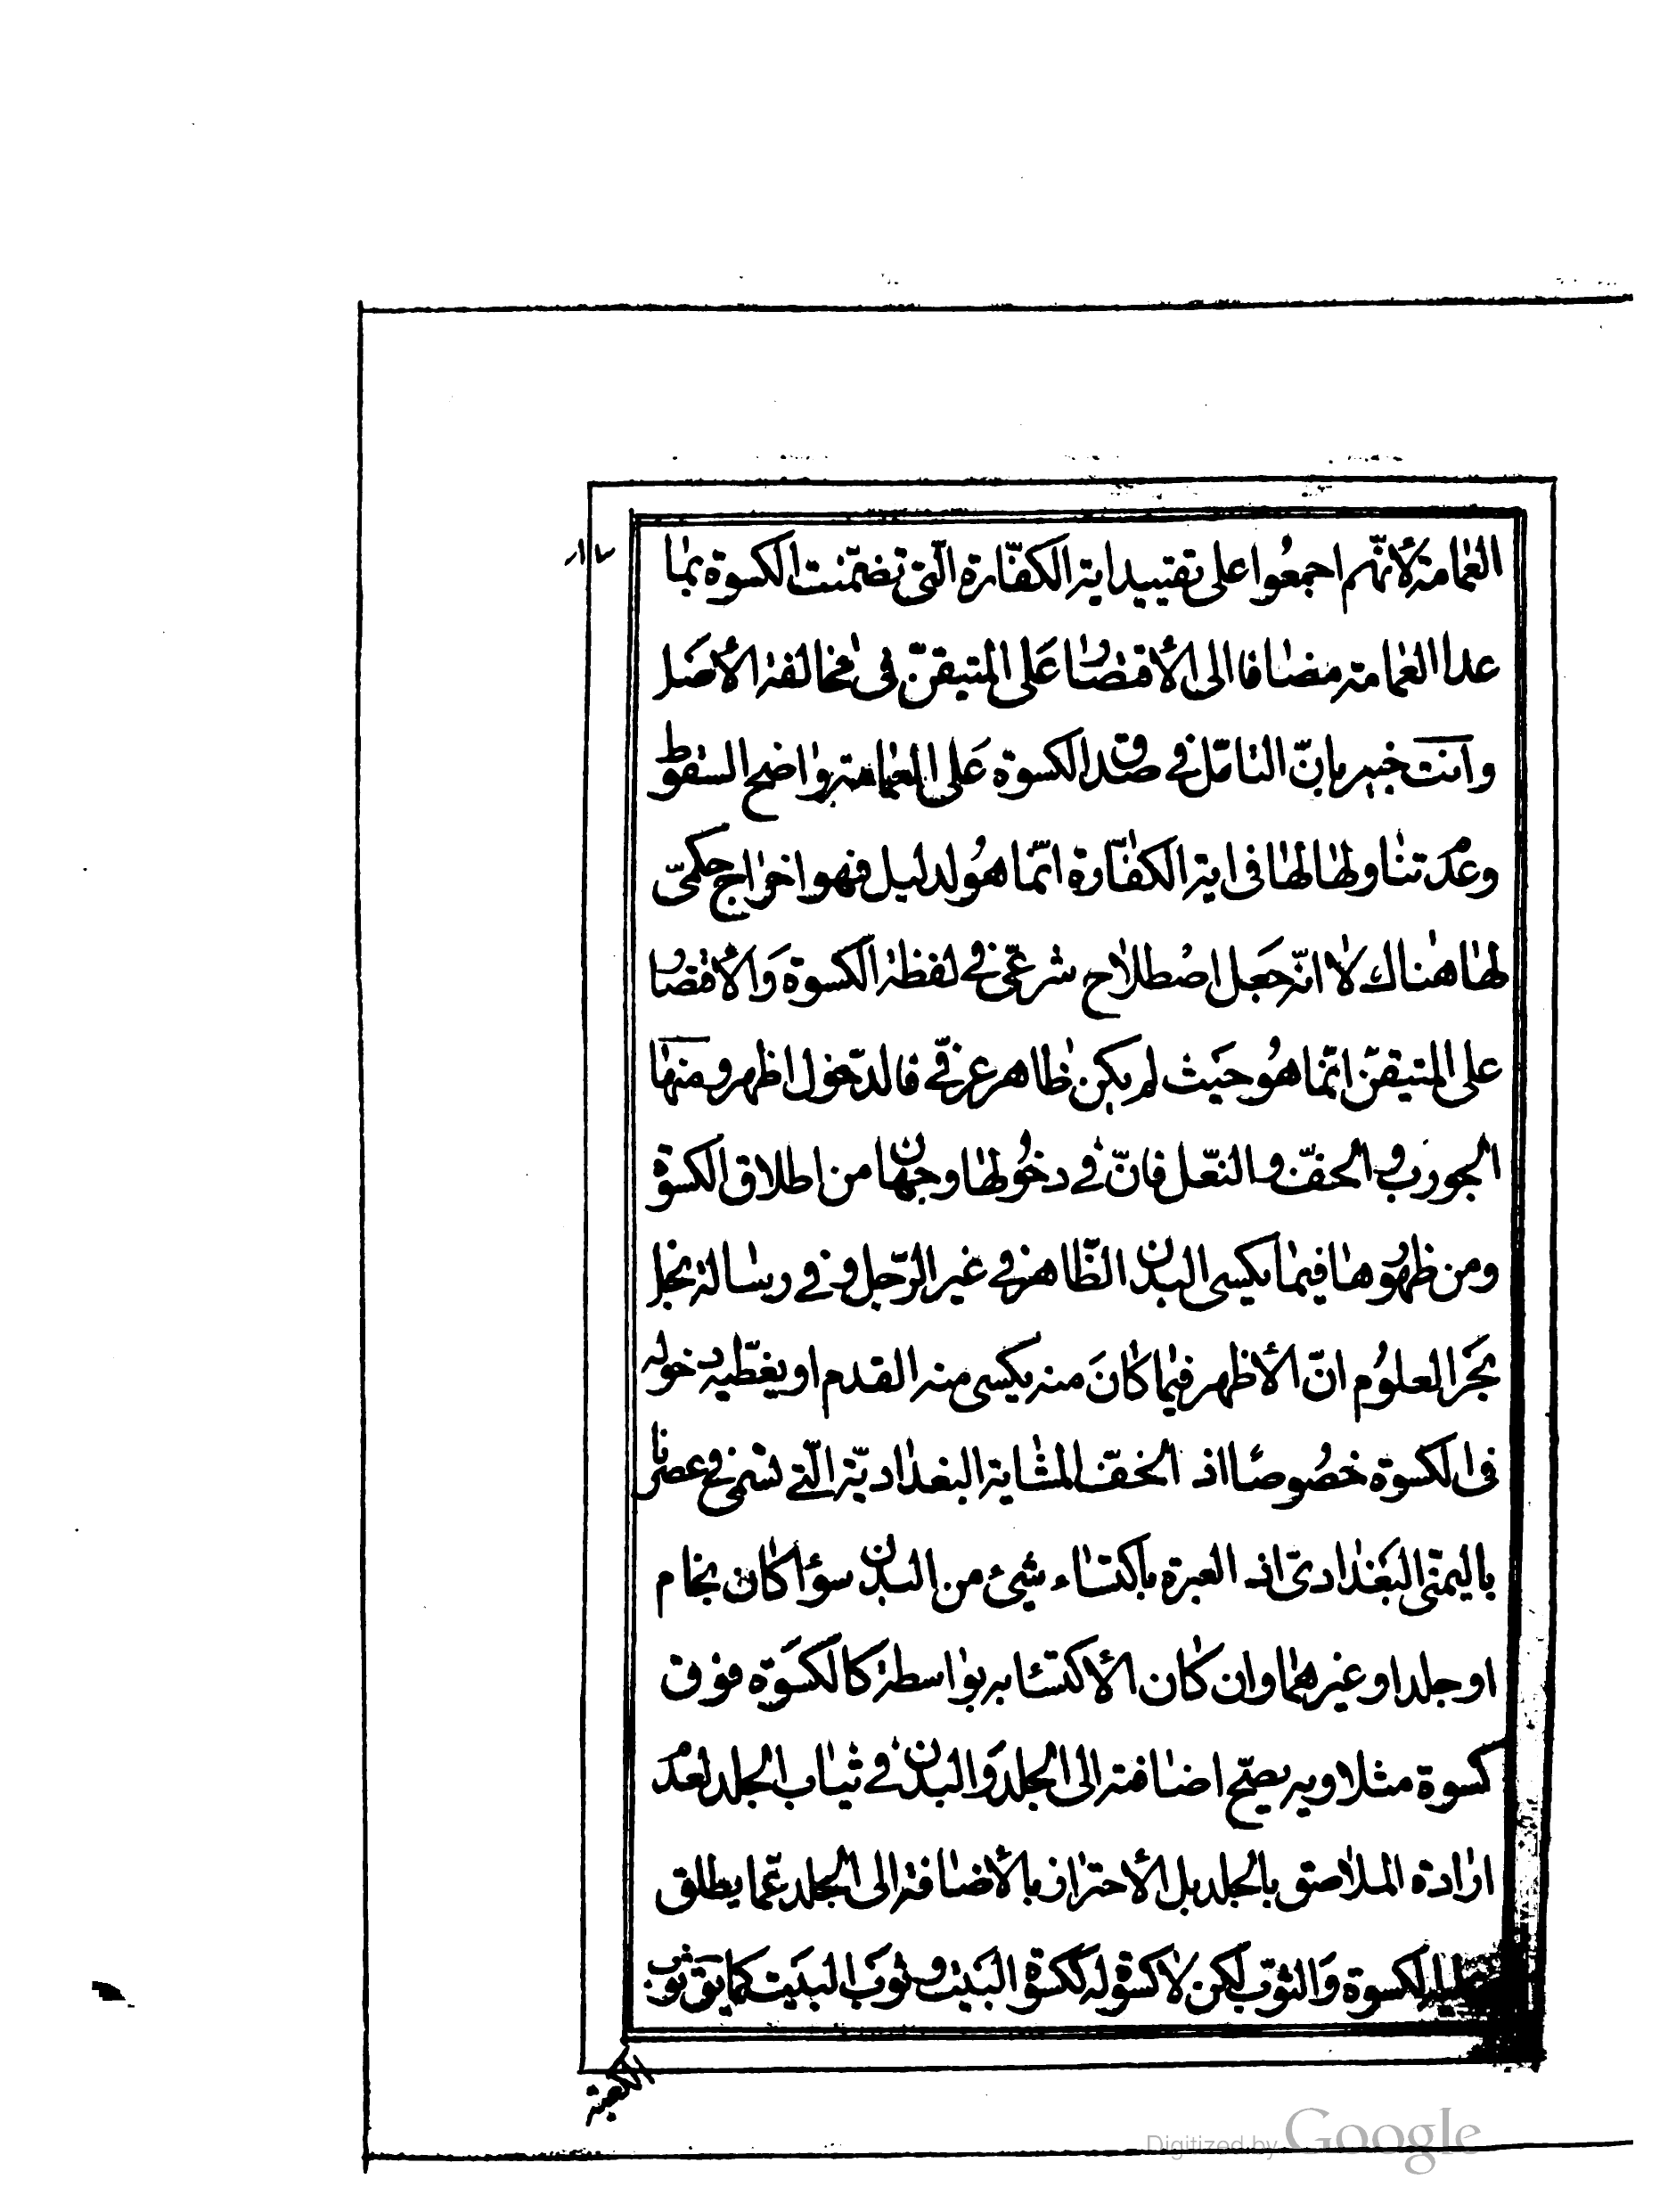 العمامة لأنّهم اجمعُوا على تقييد اية الكفّارة الّتى تضمّنت الكسوة بما
عدا العمامة مضافا الى الأقتصار عَلى المتيقّن فى مخالفة الأصَل
وانت خبير بانّ التامّل فى صدق الكسوة عَلى العمامة واضح السّقوط
وعدم تناولها لها فى اية الكفّارة انّما هُو لدليل فهو اخراج حكمىّ
لها هناك لا انّه جعَل اصُطلاح شرعىّ فى لفظة الكسوة وَالأقتصار
على المتيقّن انّما هُو حيَث لم يكن ظاهر عرفّى فالدّخول اظهر ومنها
الجورب والخفّ والنعّل فانّ فى دخُولها وجهان من اطلاق الكسوة
ومن ظهُورها فيما يكسى البدن الظّاهر فى غير الرّجل وفى رسالة نجل
بحَر العلوُم انّ الأظهر فيما كانَ منه يكسى منه القدم او يغطّيه دخوله
فى الكسوة خصُوصًا اذ الخفّ المشاية البغداديّة الّتى تسّمى فى عصرنا
باليمنّى البَغدادىّ اذ العبرة باكتساء شىء من البدن سوأ كان بخام
او جلد او غيرهما وان كان الأكتسٔا به بواسطة كالكسَوة فوق
كسوة مثلا وبه يصحّ اضافته الى الجلد وَالبدن فى ثياب الجلد لعدم
ارادة الملاصق بالجلد بل الأحتراز بالأضافة الى الجلد عمّا يطلق
الكسوة وَالثوّب لكن لا كسوة له ككسوة البَيت وثوبَ البيَت كما يقَ ثوب
الكعبة